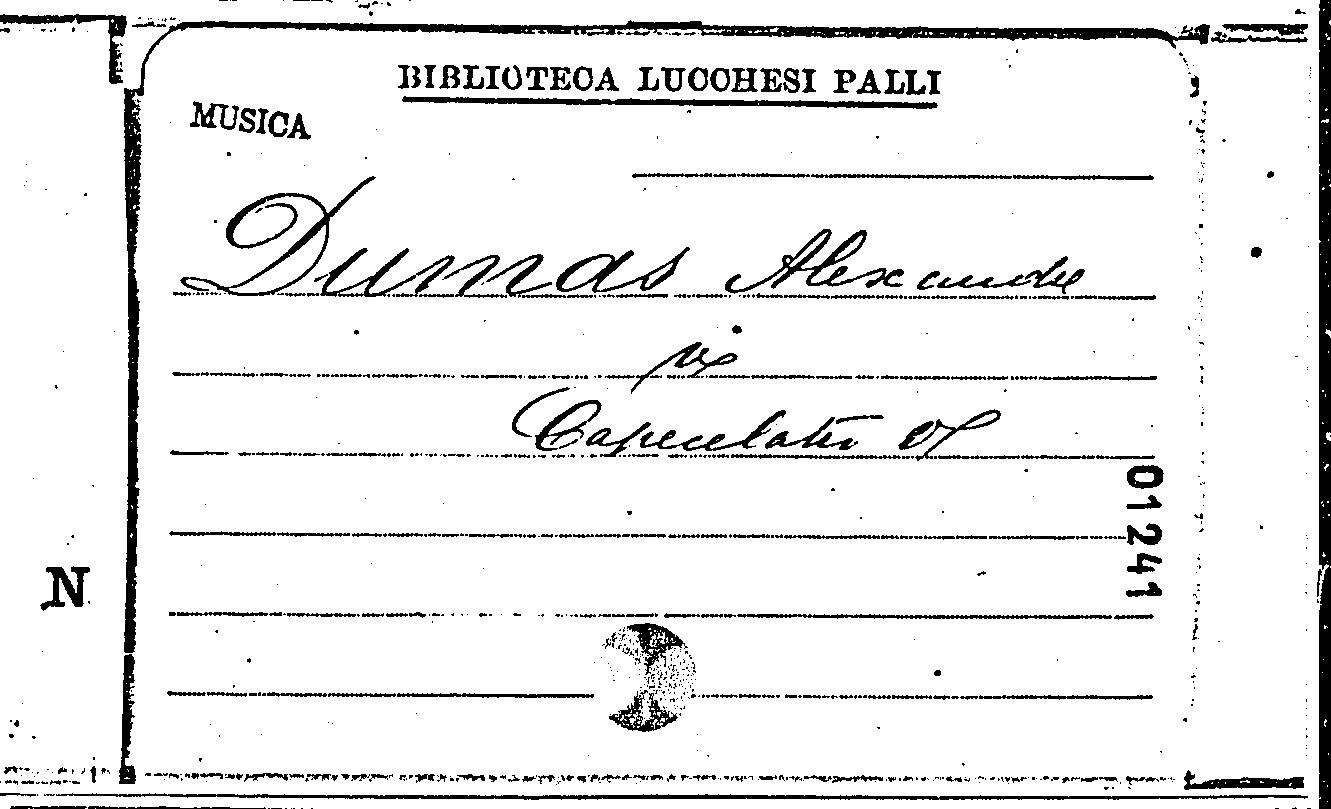 BIBLIOTECA LUCCHESI PALLI
MUSICA
Dumas Alexandre
Capecelatro
01241
N